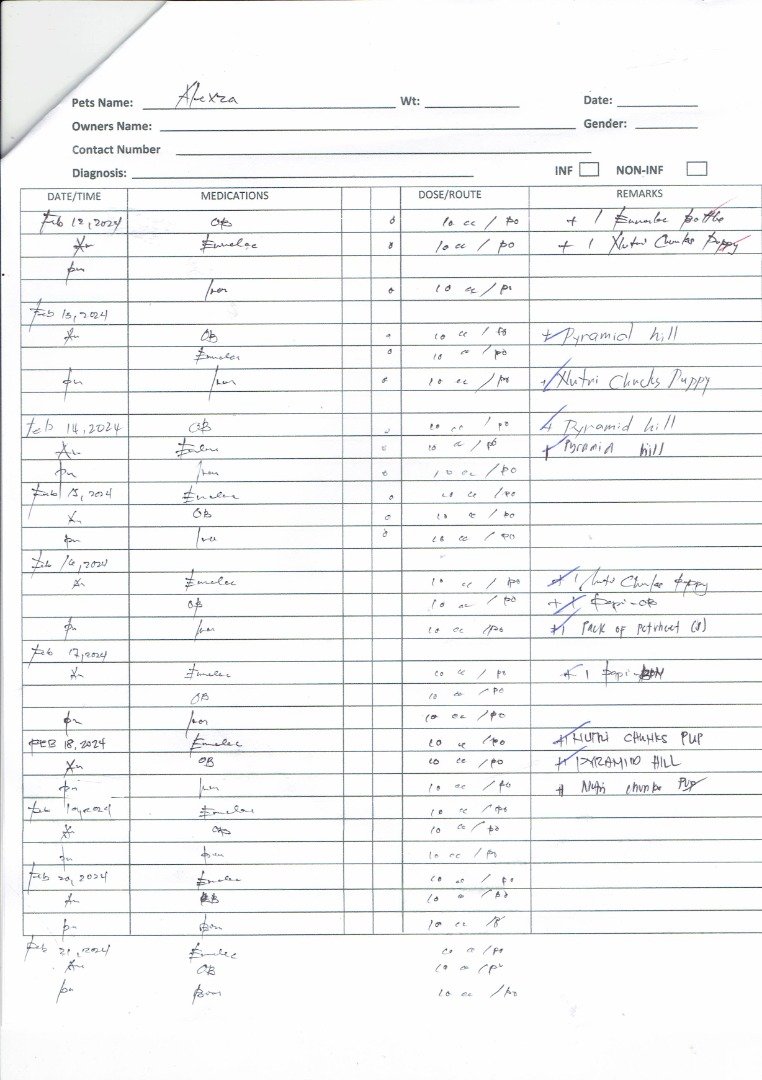 Pets Name: Alexza Wt: Date:
Owners Name: Gender:
Contact Number
Diagnosis: INF NON-INF
DATE/TIME MEDICATIONS DOSE/ROUTE REMARKS
Feb 12, 2024 OB 10 cc / po + 1 Emerlac bottle
Am Emelac 10 cc / po + 1 Nutri Chunks Puppy
pm
Iron 10 cc / po
Feb 13, 2024
Am OB 10 cc / po + Pyramid hill
Emelac 10 cc / po
pm Iron 10 cc / po + Nutri Chucks Puppy
Feb 14, 2024 OB 10 cc / po + Pyramid hill
Am 10 cc / po + Pyramid hill
pm Iron 10 cc / po
Feb 15, 2024 Emelac 10 cc / po
Am OB 10 cc / po
pm Iron 10 cc / po
Feb 16, 2024
Am Emelac 10 cc / po + 1 Nutri Chunks puppy
OB 10 cc / po + 1 Papi-OB
pm Iron 10 cc / po +1 Pack of petsheet (8)
Feb 17, 2024
Am Emelac 10 cc / po + 1 papi-
OB 10 cc / po
pm Iron 10 cc / po
FEB 18, 2024 Emelac 10 cc / po + NUTRI CHUNKS PUP
Am OB 10 cc / po + PYRAMID HILL
pm Iron 10 cc / po + Nutri chunks PUP
Feb 19, 2024 Emelac 10 cc / po
Am OB 10 cc / po
pm 10 cc / po
Feb 20, 2024 Emelac 10 cc / po
Am OB 10 cc / po
pm 10 cc /
Feb 21, 2024 Emelac 10 cc / po
Am OB 10 cc / po
pm 10 cc / po